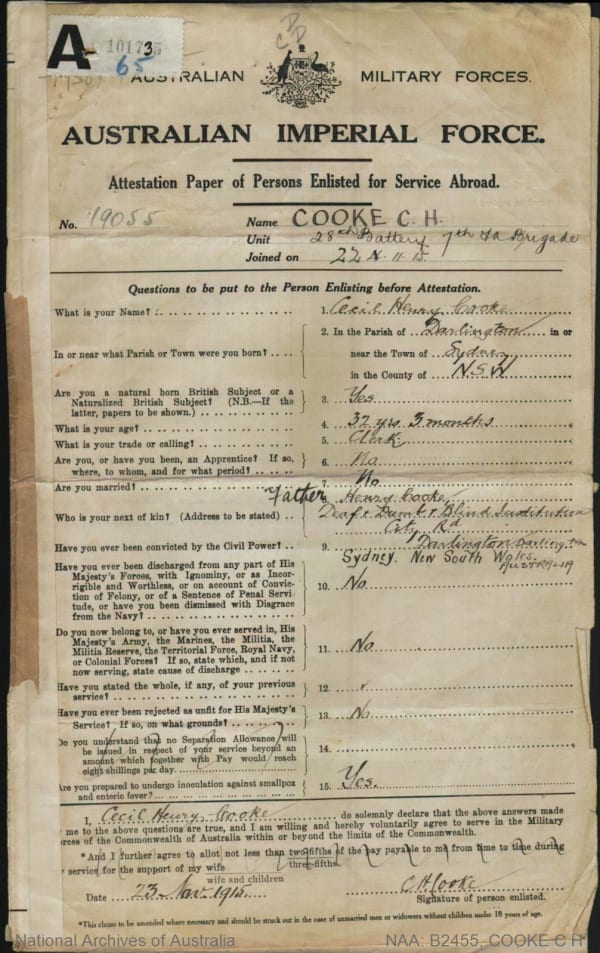 C D D
A-
101735
65
AUSTRALIAN MILITARY FORCES.
AUSTRALIAN IMPERIAL FORCE.
Attestation Paper of Persons Enlisted for Service Abroad.
No. 19055
Name COOKE C. H.
Unit 28th Battery 7th Fa Brigade
Joined on 22 11. 15.
Questions to be put to the Person Enlisting before Attestation.
What is your Name? 1. Cecil Henry Cooke
In or near what Parish or Town were you born? 2. In the Parish of Darlington in or
near the Town of Sydney
in the County of NSW
Are you a natural born British Subject or a
Naturalized British Subject? (N.B.—If the
latter, papers to be shown.) 3. Yes
What is your age? 4. 32 yrs 3 months
What is your trade or calling? 5. Clerk
Are you, or have you been, an Apprentice? If so,
where, to whom, and for what period? 6. No
Are you married? 7. No
Father Henry Cooke
Who is your next of kin? (Address to be stated) Deaf & Dumb & Blind Institution
City Rd
Have you ever been convicted by the Civil Power? 9. Darlington Darlington
Sydney. New South Wales. AUSTRALIA
Have you ever been discharged from any part of His
Majesty's Forces, with Ignominy, or as Incor-
rigible and Worthless, or on account of Convic-
tion of Felony, or of a Sentence of Penal Servi-
tude, or have you been dismissed with Disgrace
from the Navy? 10. No
Do you now belong to, or have you ever served in, His
Majesty's Army, the Marines, the Militia, the
Militia Reserve, the Territorial Force, Royal Navy,
or Colonial Forces? If so, state which, and if not
now serving, state cause of discharge 11. No
Have you stated the whole, if any, of your previous
service? 12.
Have you ever been rejected as unfit for His Majesty's
Service? If so, on what grounds? 13. No
Do you understand that no Separation Allowance will
be issued in respect of your service beyond an
amount which together with Pay would reach
eight shillings per day. 14.
Are you prepared to undergo inoculation against smallpox
and enteric fever? 15. Yes.
I, Cecil Henry Cooke do solemnly declare that the above answers made
me to the above questions are true, and I am willing and hereby voluntarily agree to serve in the Military
orces of the Commonwealth of Australia within or beyond the limits of the Commonwealth.
*And I further agree to allot not less than two-fifths of the pay payable to me from time to time during
three-fifths
service for the support of my wife
wife and children
Date 23 Nov. 1915.
C H Cooke
Signature of person enlisted.
*This clause to be amended where necessary and should be struck out in the case of unmarried men or widowers without children under 18 years of age.
National Archives of Australia NAA: B2455, COOKE C H